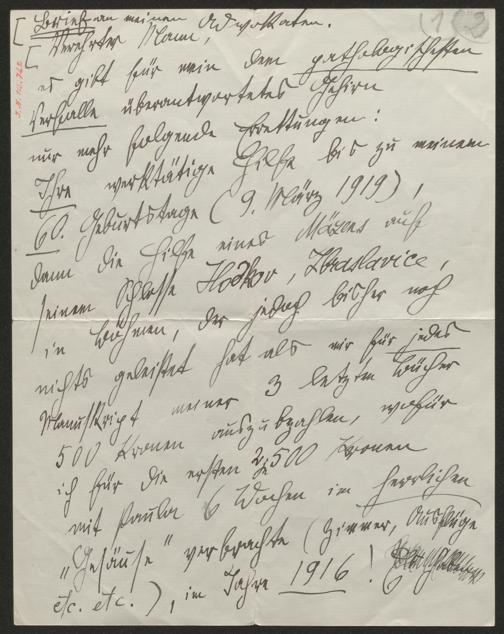 [Brief an meinen Advokaten.
[Verehrter Mann,
es gibt für mein dem pathologischen
Verfalle überantwortetes Gehirn
nur mehr folgende Rettungen:
Ihre werktätige Hilfe bis zu meinem
60. Geburtstage (9. März 1919),
dann die Hilfe eines Mäzens auf
seinem Schlosse Hodkov, Zbraslavice,
in Böhmen, der jedoch bisher noch
nichts geleistet hat als mir für jedes
Manuskript meiner 3 letzten Bücher
500 Kronen auszubezahlen, wofür
ich für die ersten 2, 500 Kronen
mit Paula 6 Wochen im herrlichen
„Gesäuse" verbrachte (Zimmer, Ausflüge
etc. etc.), im Jahre 1916!